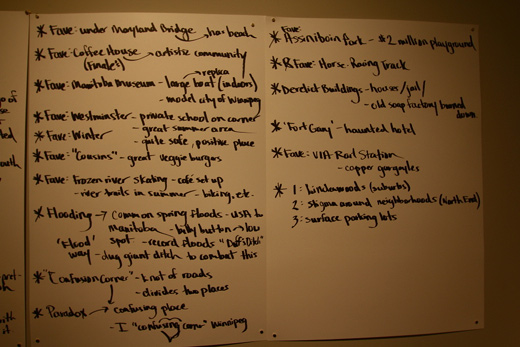 * Fave: under Maryland Bridge → has beach
* Fave: Coffee House → artistic community
(Finale!)
* Fave: Manitoba Museum - large boat (indoors)
→ replica
- model city of Winnipeg
* Fave: Westminster - private school on corner
- great summer area
* Fave: Winter - quite safe, positive place
* Fave: "Cousins" - great veggie burgers
* Fave: Frozen river skating - café set up
- river trails in summer - biking, etc.
* Flooding → Common spring floods - USA to
Manitoba - belly button → low
'Flood' spot - record floods "Duff's Ditch"
way - dug giant ditch to combat this
* "Confusion Corner" - knot of roads
- divides two places
* Paradox → confusing place
- I "confusing corner" Winnipeg
Fave:
* Assiniboin Park - $2 million playground
* Fave: Horse Racing Track
* Derelict Buildings - houses/jail/
- old soap factory burned
down
* "Fort Gary" - haunted hotel
* Fave: VIA Rail Station
- copper gargoyles
* 1: Lindenwoods (suburbs)
2: stigma around neighborhoods (North End)
3: surface parking lots